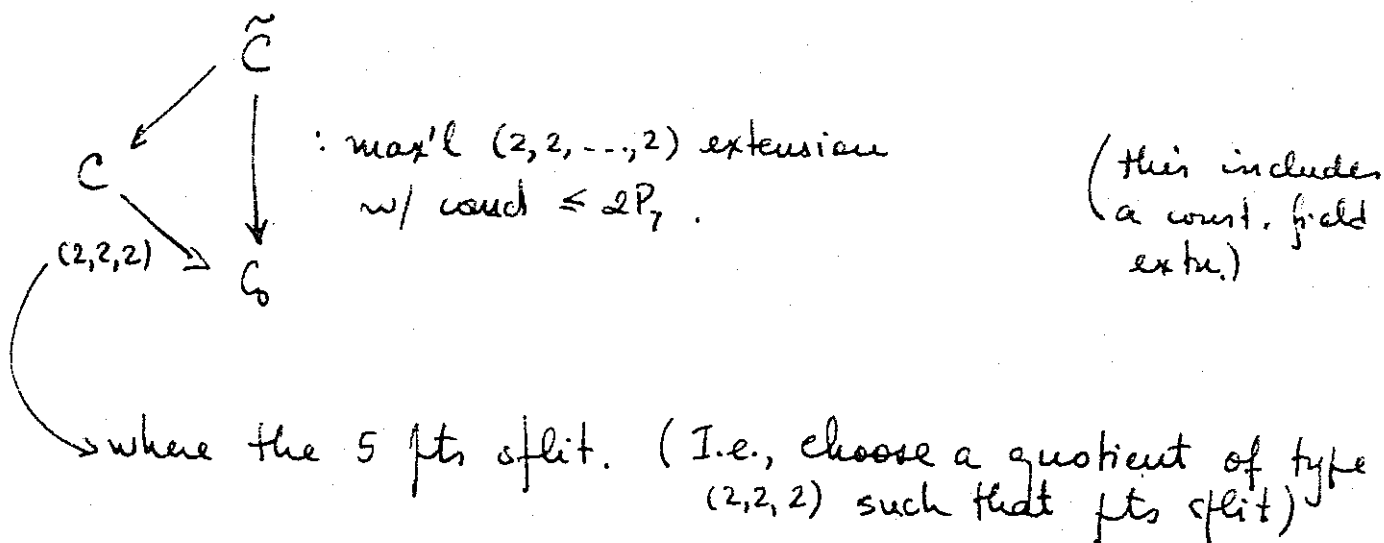 C̃
: max'l (2,2,---,2) extension
w/ cond ≤ 2P₇ .
(this includes
a const. field
extn.)
C
(2,2,2)
C₀
where the 5 pts split. (I.e., choose a quotient of type
(2,2,2) such that pts split)